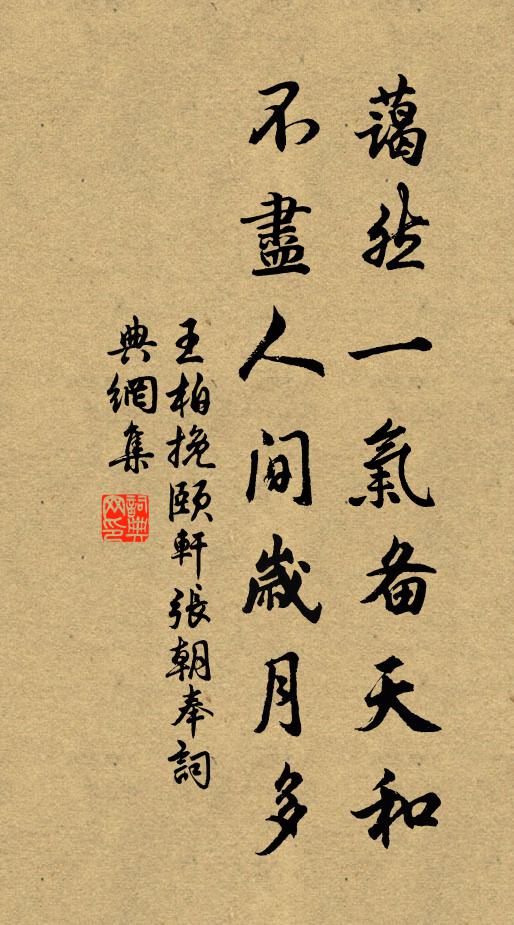 藹然一氣备天和
不盡人間歲月多
王柏挽頤軒張朝奉詞
典網集
詞典網印